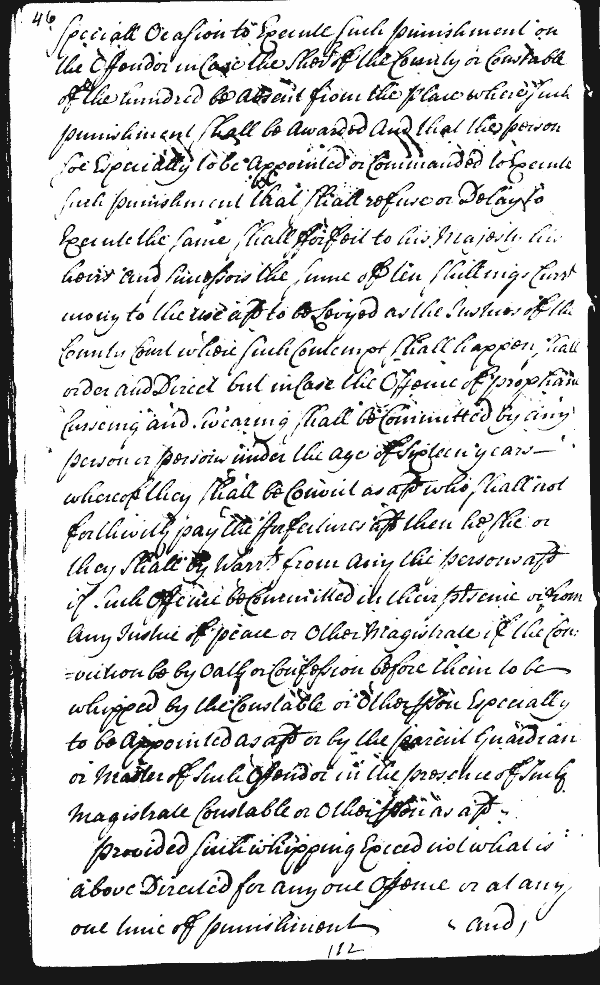 46
speciall Ocasion to Execute such punishment on
the Offendor in Case the Sher of the County or Constable
of the hundred be absent from the place where such
punishment shall be Awarded And that the person
soe Especially to be Appointed or Commanded to Execute
such punishment that shall refuse or Delay to
Execute the same shall forfeit to his Majesty his
heirs and Successors the sume of ten shillings Currt
mony to the use afd to be Levyed as the Justices of the
County Court where such Contempt shall happen shall
order and Direct but in Case the Offence of prophane
Curseing and Swearing shall be Committed by any
person or persons under the age of Sixteen years
whereof they shall be Convict as afd who shall not
forthwith pay the forfeitures afd then he she or
they shall by Warrt from Any the persons afd
if such Offence be Committed in their psence or from
Any Justice of peace or Other Magistrate if the Con:
=viction be by Oath or Confession before them to be
whipped by the Constable or Other pson Especially
to be Appointed as afd or by the parent Guardian
or Master of such Offendor in the presence of such
Magistrate Constable or Other pson as afd
provided such whipping Exceed not what is
above Directed for any one Offence or at any
one time of punishment and,
112